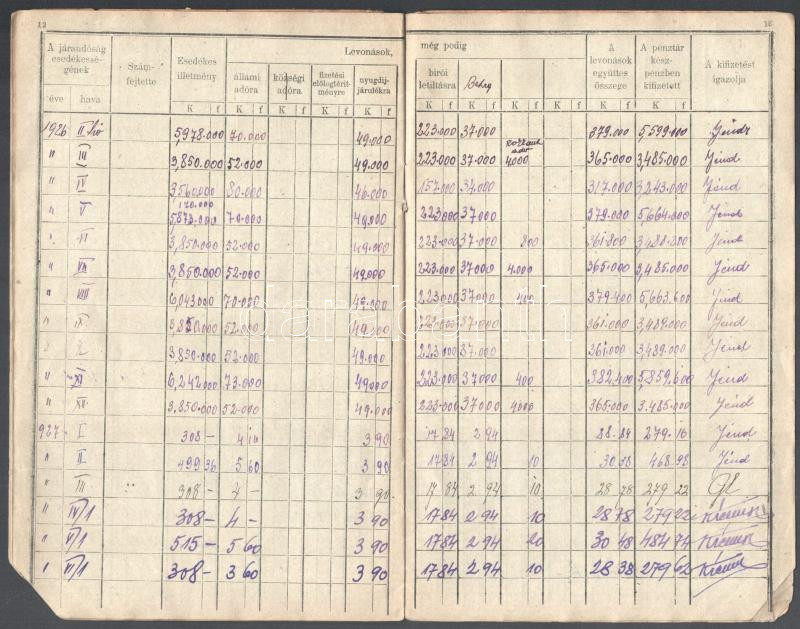 12
18
A járandóság esedékességének
Számfejtette
Esedékes illetmény
Levonások,
még pedig
A levonások együttes összege
A pénztár készpenzben kifizetett
A kifizetést igazolja
állami adóra
községi adóra
fizetési előlegtérítményre
nyugdíjjárulékra
birói letiltásra
éve hava K f K f K f K f K f K f K f K f K f K f K f
1926 II 5,978.000 70.000 49.000 223.000 37.000 379.000 5,599.000
" III 3,850.000 52.000 49.000 223.000 37.000 4000 365.000 3,485.000 Jénd
" IV 3560.000 80.000 46.000 157.000 34.000 317.000 3,243.000 Jénd
" V 5,873.000 70.000 49.000 223.000 37000 379.000 5,664.000 Jénd
" VI 3,850.000 52.000 49.000 223.000 37.000 800 3,488.200 Jénd
" VII 3,850.000 52.000 49.000 223.000 37000 4.000 365.000 3,485.000 Jénd
" VIII 6,043.000 70.000 49.000 223.000 37000 400 379.400 5,663.600 Jénd
" IX 3,850.000 52.000 49.000 223.000 37.000 361.000 3,489.000 Jénd
" X 3,850.000 52.000 49.000 223.000 37.000 361.000 3,489.000 Jénd
" XI 6,242.000 73.000 49.000 223.000 37000 400 382.400 5,859.600 Jénd
" XII 3,850.000 52.000 49.000 223.000 37000 4000 365.000 3.485.000 Jénd
927. I 308 – 4 10 3 90 17 84 2 94 28.84 279.16 Jénd
" II 499 36 5 60 3 90 17 84 2 94 10 30 38 468.98 Jénd
" III 308 – 4 – 3 90 17 84 2 94 10 28 78 279 22
" IV/1 308 – 4 – 3 90 17 84 2 94 10 28 78 279 22
" V/1 515 – 5 60 3 90 17 84 2 94 20 30 48 484 74
" VI/1 308 – 3 60 3 90 17 84 2 94 10 28 38 279 62
darabanth